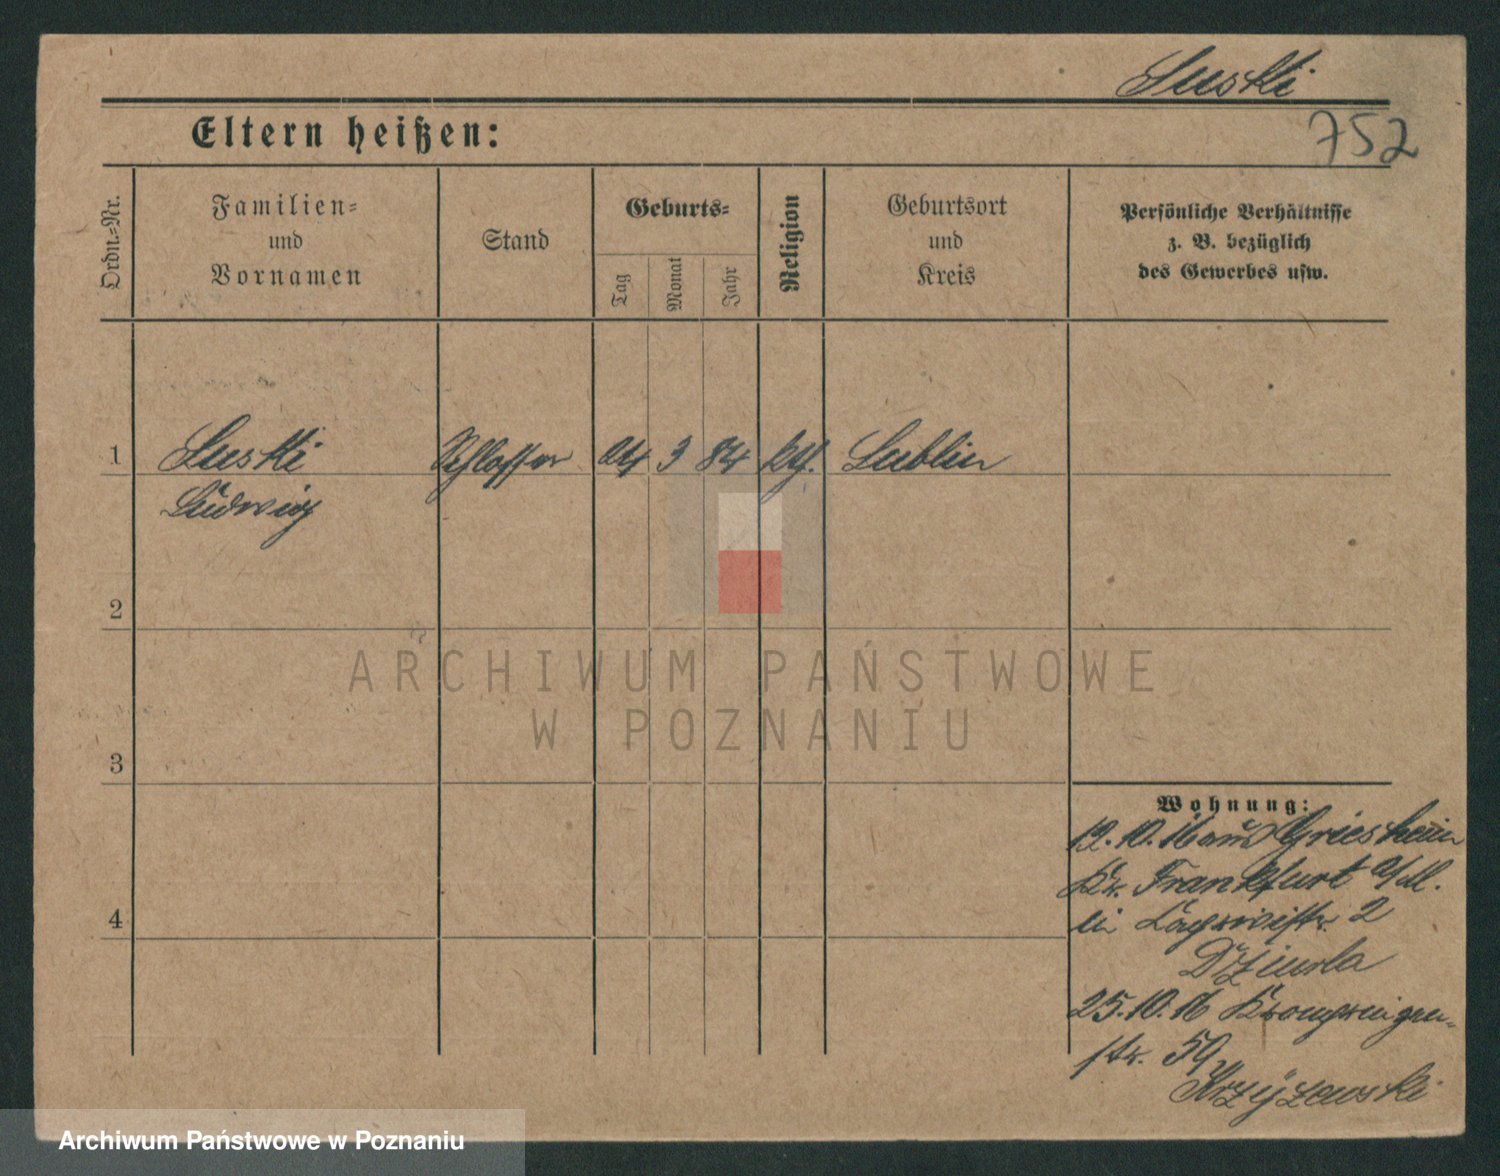 Suski
752
Eltern heißen:
Ordn.=Nr.
Familien=
und
Vornamen
Stand
Geburts=
Tag
Monat
Jahr
Religion
Geburtsort
und
Kreis
Persönliche Verhältnisse
z. B. bezüglich
des Gewerbes usw.
1 Suski Schlosser 24 3 84 kth. Lublin
Ludwig
2
3
4
Wohnung:
12.10.16 aus Griesheim
Kr. Frankfurt a/M.
2
Dziurla
25.10.16 Kronprinzen-
str. 59
Krzyżewski
ARCHIWUM PAŃSTWOWE
W POZNANIU
Archiwum Państwowe w Poznaniu